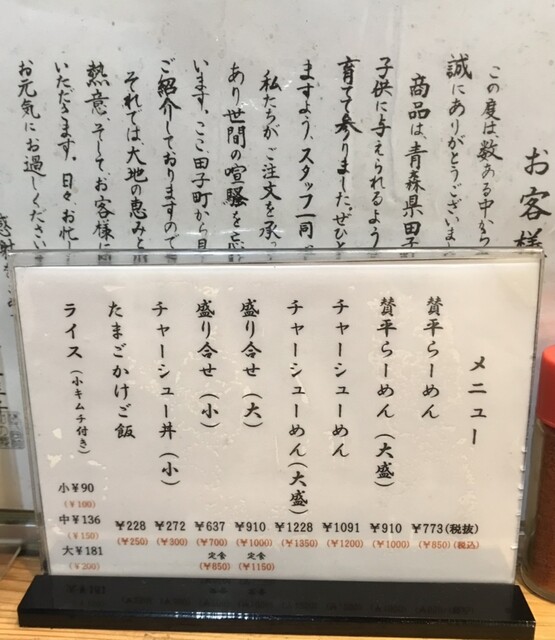 お客様
この度は、数ある中から
誠にありがとうございま
商品は、青森県田子
子供に与えられるよう
育てて参りました。ぜひと
ますよう、スタッフ一同
私たちがご注文を承っ
あり世間の喧騒を忘
います。ここ、田子町から
ご紹介しておりますので
それでは、大地の恵みと
熱意、そして、お客様に
いただきます。日々、お忙し
お元気にお過しください
メニュー
賛平らーめん ¥773(税抜) (¥850)(税込)
賛平らーめん(大盛) ¥910 (¥1000)
チャーシューめん ¥1091 (¥1200)
チャーシューめん(大盛) ¥1228 (¥1350)
盛り合せ(大) ¥910 (¥1000) 定食 (¥1150)
盛り合せ(小) ¥637 (¥700) 定食 (¥650)
チャーシュー丼(小) ¥272 (¥300)
たまごかけご飯 ¥228 (¥250)
ライス(小キムチ付き)
小¥90
(¥100)
中¥136
(¥150)
大¥181
(¥200)